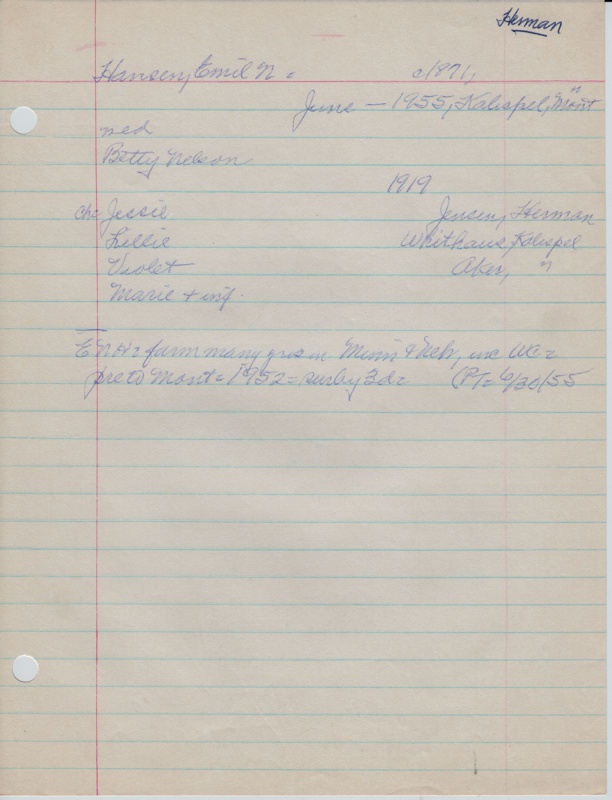 Herman
Hansen, Emil N = c1871,
June — 1955, Kalispel, Mont
med
Betty Nelson
1919
Chc Jessie Jensen, Herman
Lillie Whithaus, Kalispel
Violet Aker, "
Marie + inf.
ENH = farm many yrs in Minn & Neb, inc WC =
pre to Mont = 1952 = surby 3d = (PT = 6/30/55